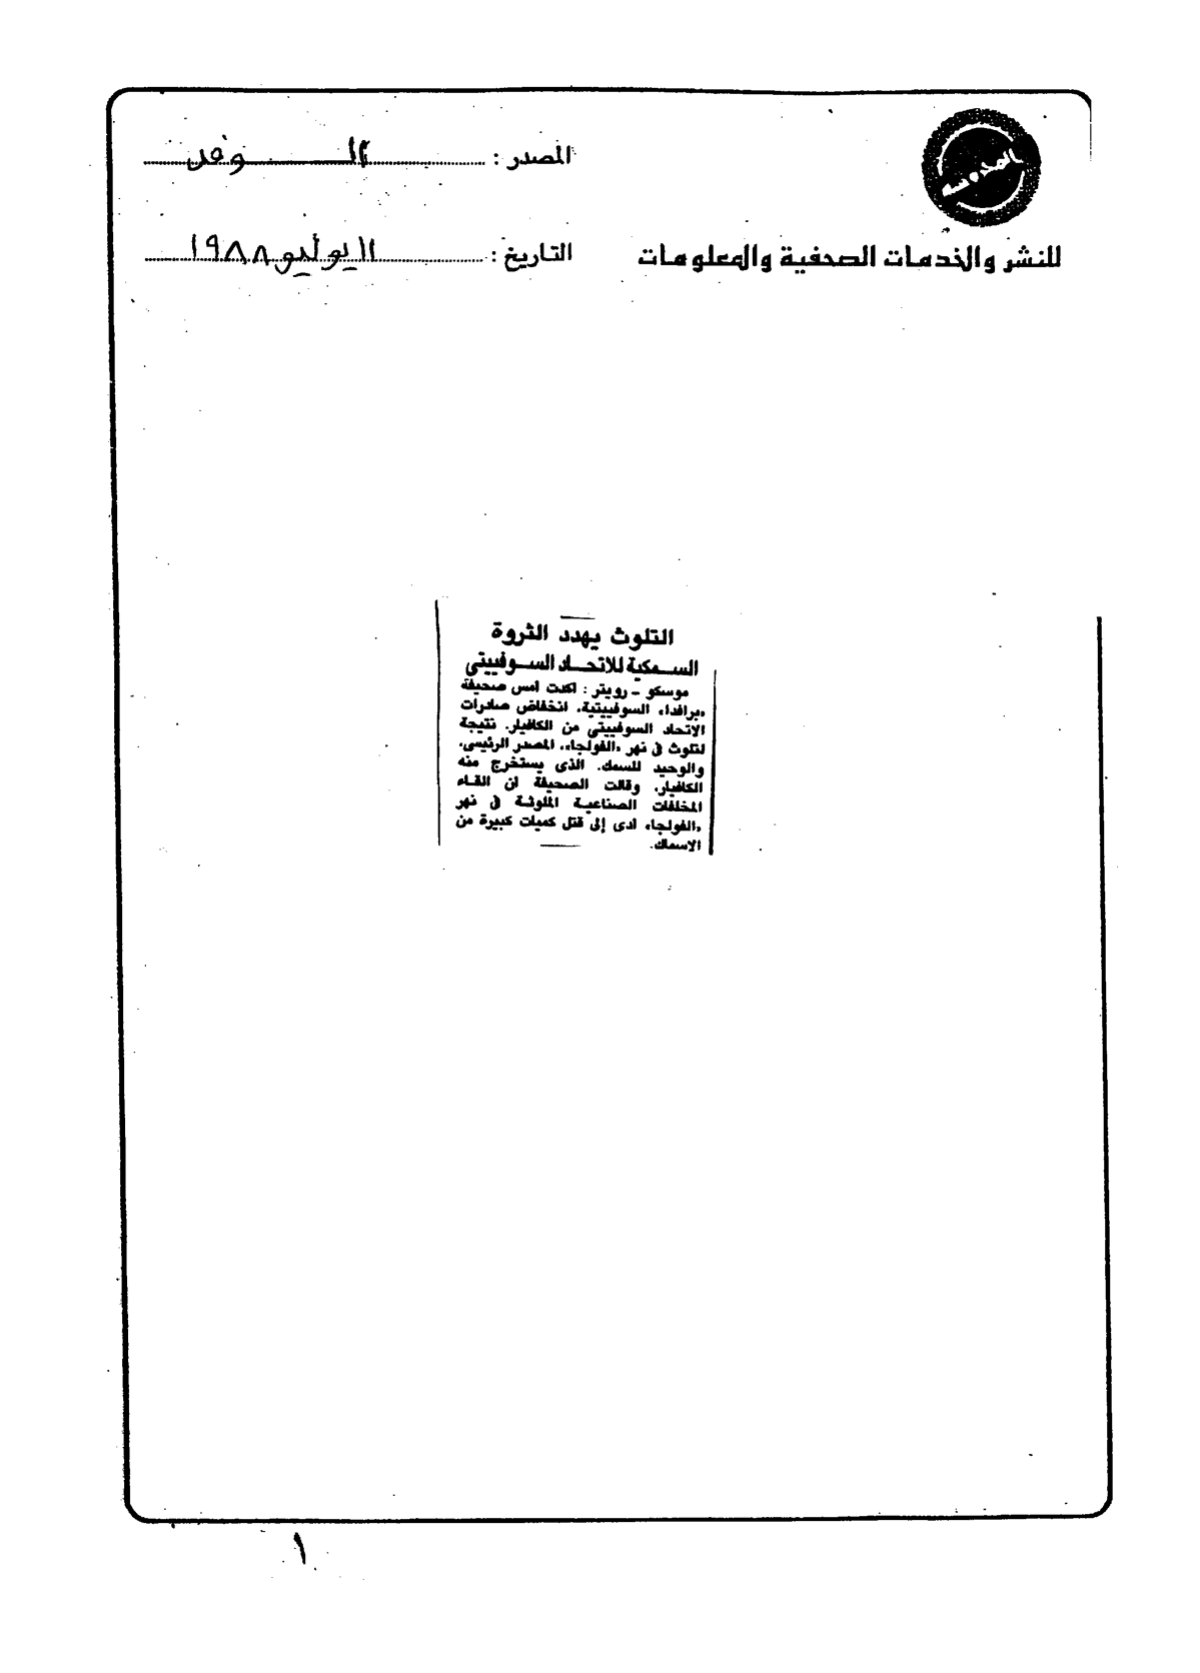 المصدر : الوفد
للنشر والخدمات الصحفية والمعلومات
التاريخ : ١١ يوليو ١٩٨٨
التلوث يهدد الثروة
السمكية للاتحاد السوفييتى
موسكو ـ رويتر : اكدت امس صحيفة
«برافدا» السوفييتية، انخفاض صادرات
الاتحاد السوفييتى من الكافيار، نتيجة
لتلوث فى نهر «الفولجا»، المصدر الرئيسى،
والوحيد للسمك، الذى يستخرج منه
الكافيار. وقالت الصحيفة ان القاء
المخلفات الصناعية الملوثة فى نهر
«الفولجا» ادى إلى قتل كميات كبيرة من
الاسماك.
١